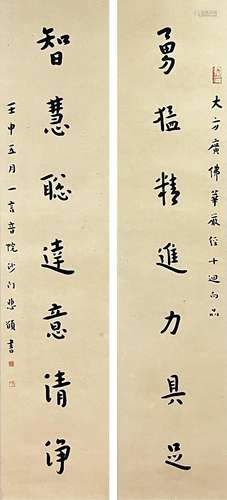 大方廣佛華嚴經十迴向品
勇猛精進力具足
智慧聡達意清淨
壬申五月一音院沙门悲頌書